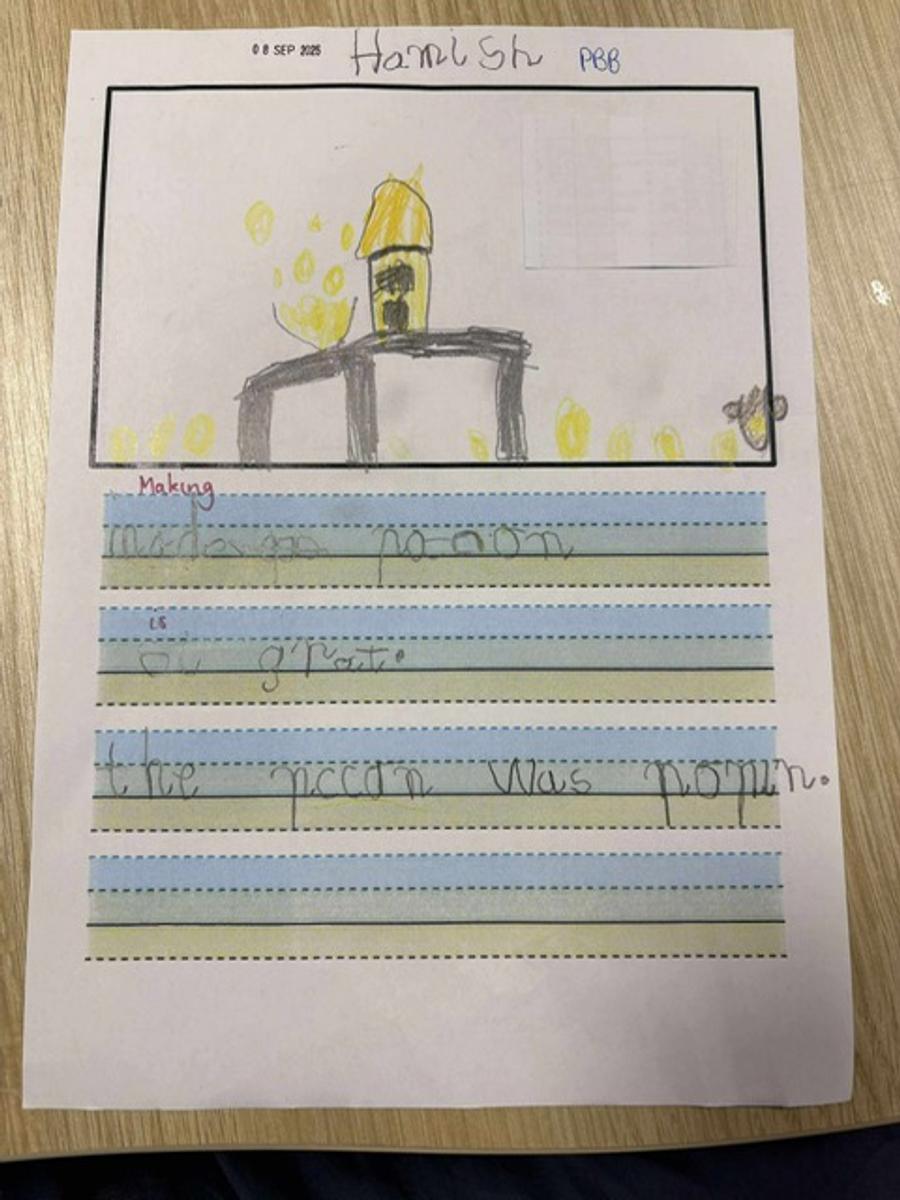 08 SEP 2025 Hamish PBB
Making
pa-non
is
grat.
the pccon was popin.